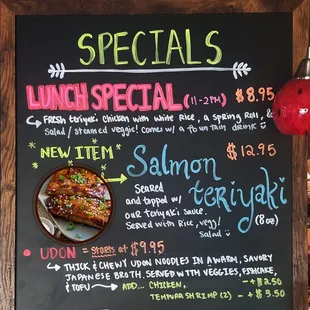 SPECIALS
LUNCH SPECIAL (11-2PM) $8.95
Fresh teriyaki chicken with white rice, a spring roll, &
Salad / steamed veggie! Comes w/ a fountain drink
*NEW ITEM* $12.95
Salmon
teriyaki
Seared
and topped w/
our teriyaki sauce.
Served with Rice, vegg/
Salad
(8oz)
UDON = Starts at $9.95
THICK & CHEWY UDON NOODLES IN A WARM, SAVORY
JAPANESE BROTH. SERVED WITH VEGGIES, FISHCAKE,
& TOFU ADD... CHICKEN, - +$2.50
TEMPURA SHRIMP (2) - +$3.50